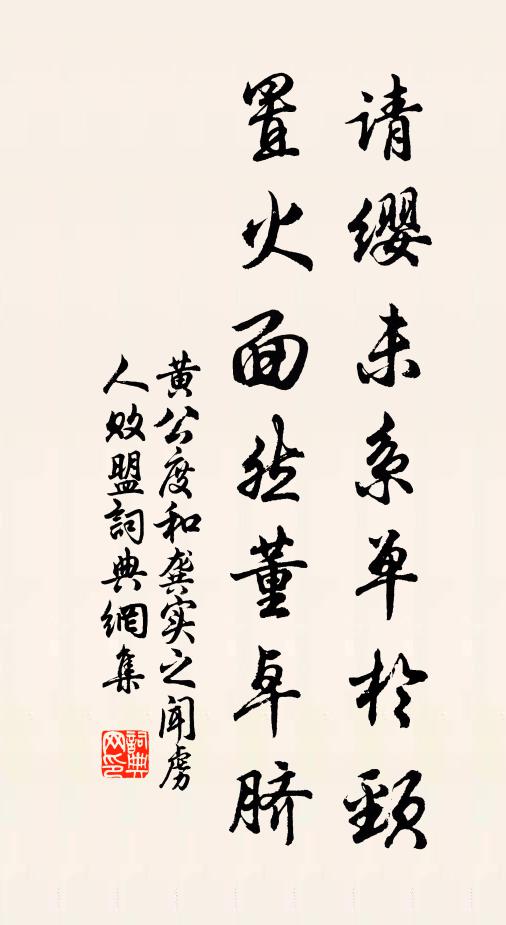 请缨未系单於颈
置火面然董卓脐
黄公度和龚实之闻虏
人败盟詞典網集
詞典
网印